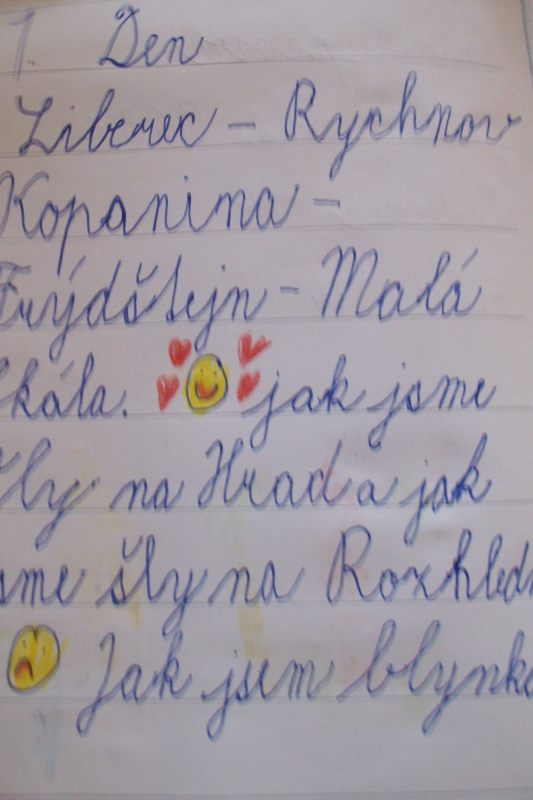 1. Den
Liberec - Rychnov
Kopanina -
Frýdštejn - Malá
Skála. jak jsme
šly na Hrad a jak
jsme šly na Rozhledn
Jak jsem blynk